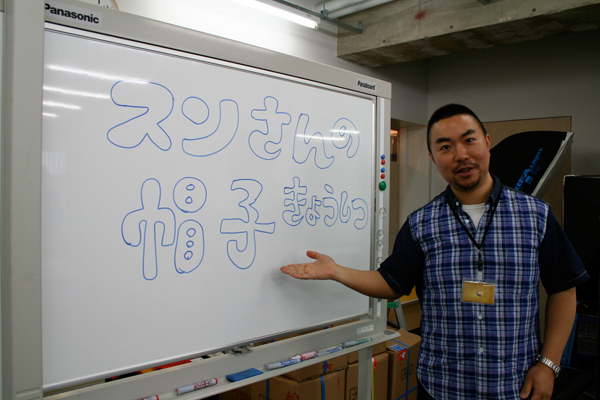 Panasonic
Panaboard
スンさんの
帽子きょうしつ